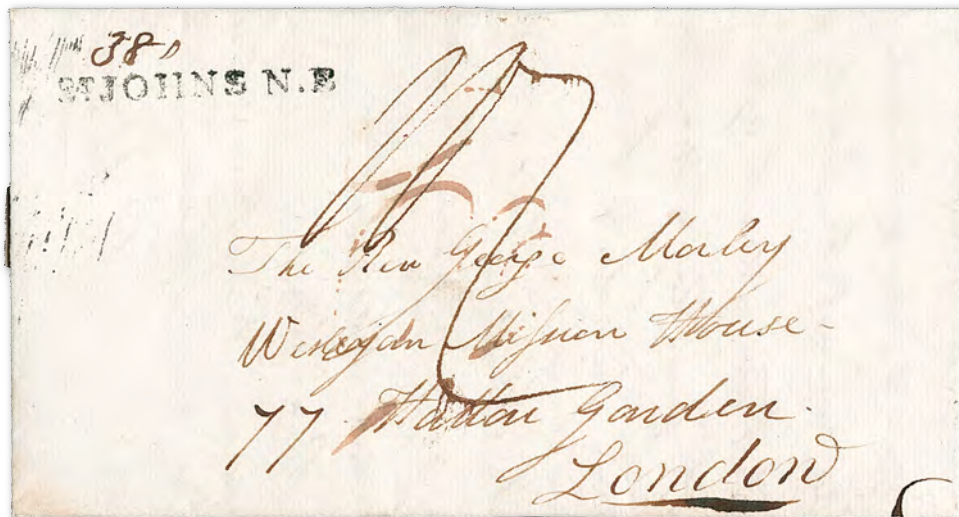 38
ST JOHNS N.B
The Rev George Morley
Wesleyan Mission House-
77 Hatton Garden.
London